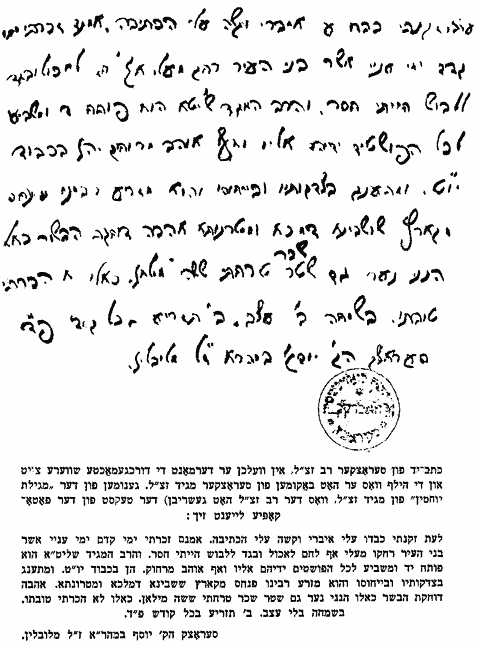 זקנתי כבדו עלי איברי וקשה עלי הכתיבה. אמנם זכרתי ימי
קדם ימי עניי אשר בני העיר רחקו מעלי אף לחם לאכול ובגד
ללבוש הייתי חסר. והרב המגיד שליט"א הוא פותח יד ומשביע
לכל הפושטים ידיהם אליו ואף אוהב מרחוק. הן בכבוד
יו"ט. ומתענג בצדקותיו וביחוסו והוא מזרע רבינו פינחס
מקארץ שושבינא דמלכא ומטרוניתא אהבה דוחקת הבשר כאלו
הנני נער גם שטר שכר טרחתי ששה מילאן. כאלו לא הכרתי
טובתו. בשמחה בלי עצב. ב' תזריע בכל קודש פ"ד
סעראצק הק' יוסף במהר"א ז"ל מלובלין.
כתב־יד פון סעראצקער רב זצ"ל, אין וועלכן ער דערמאנט די דורכגעמאכטע שווערע צייט
און די הילף וואס ער האט באקומען פון סעראצקער מגיד זצ"ל. גענומען פון דער „מגילת
יוחסין" פון מגיד זצ"ל. וואס דער רב זצ"ל האט געשריבן) דער טעקסט פון דער פאטא־
קאפיע לייענט זיך:
לעת זקנתי כבדו עלי איברי וקשה עלי הכתיבה. אמנם זכרתי ימי קדם ימי עניי אשר
בני העיר רחקו מעלי אף לחם לאכול ובגד ללבוש הייתי חסר. והרב המגיד שליט"א הוא
פותח יד ומשביע לכל הפושטים ידיהם אליו ואף אוהב מרחוק. הן בכבוד יו"ט. ומתענג
בצדקותיו וביחוסו והוא מזרע רבינו פנחס מקארץ ששבינא דמלכא ומטרונתא. אהבה
דוחקת הבשר כאלו הנני נער גם שטר שכר טרחתי ששה מילאן. כאלו לא הכרתי טובתו.
בשמחה בלי עצב. ב' תזריע בכל קודש פ"ד.
סעראצק הק' יוסף במהר"א ז"ל מלובלין.